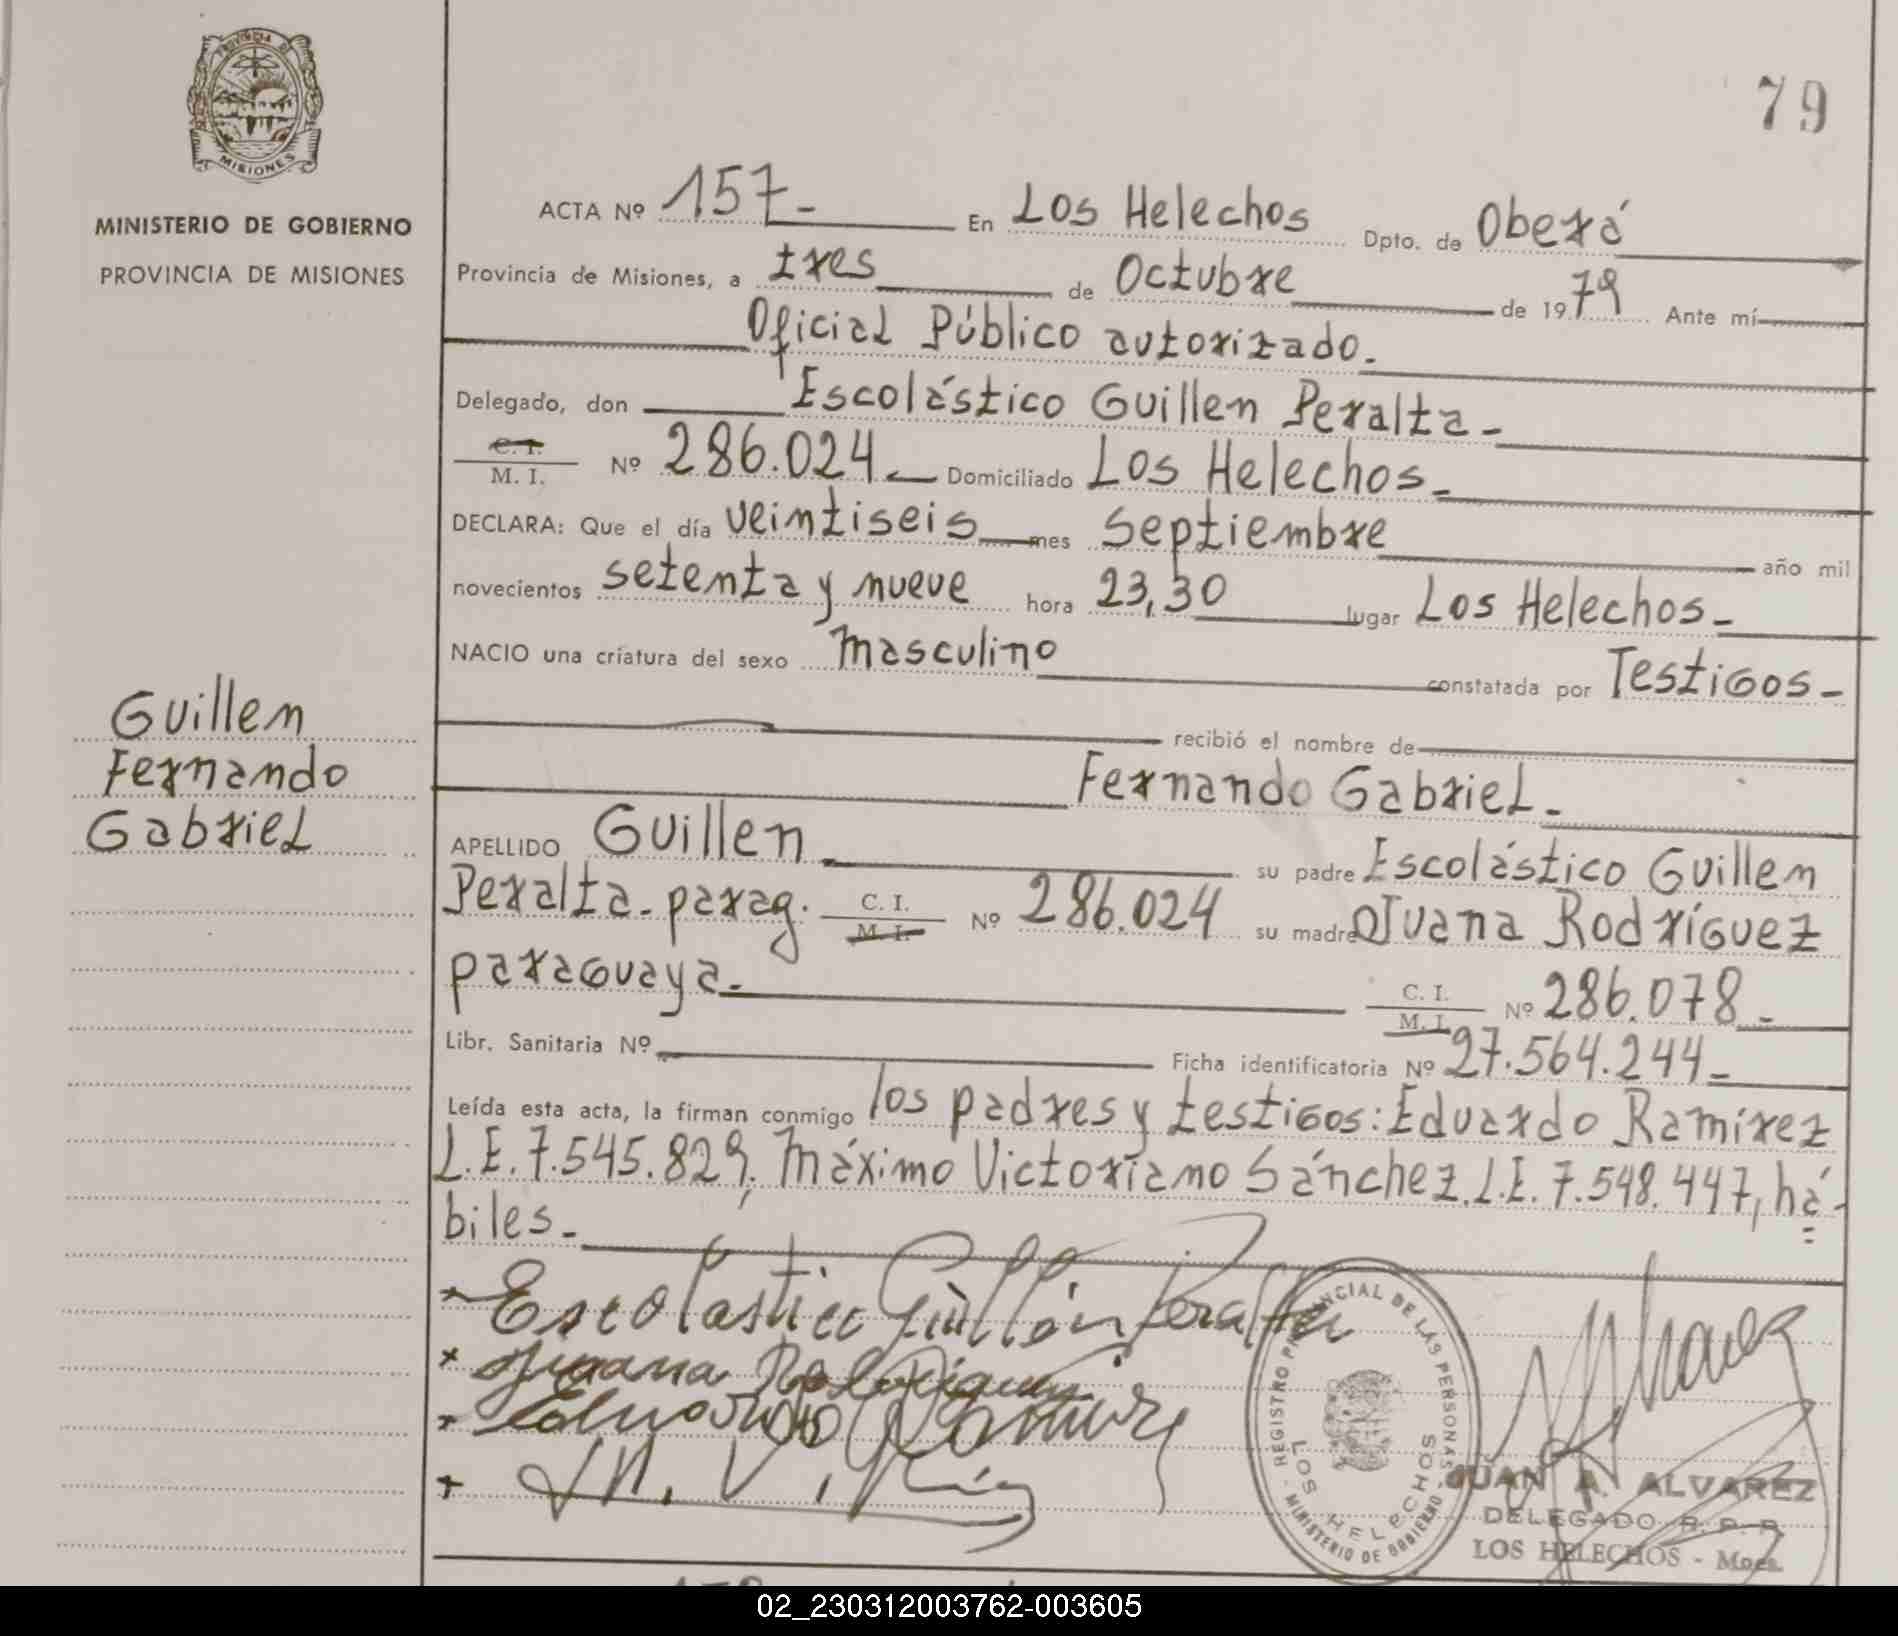 PROVINCIA DE
MISIONES
MINISTERIO DE GOBIERNO
PROVINCIA DE MISIONES
79
ACTA Nº 157- En Los Helechos Dpto. de Oberá
Provincia de Misiones, a tres de Octubre de 1979 Ante mí
Oficial Público autorizado.
Delegado, don Escolástico Guillen Peralta-
C. I.
M. I. Nº 286.024.- Domiciliado Los Helechos-
DECLARA: Que el día veintiseis mes septiembre año mil
novecientos setenta y nueve hora 23,30 lugar Los Helechos-
NACIO una criatura del sexo masculino constatada por Testigos-
recibió el nombre de
Fernando Gabriel-
Guillen
Fernando
Gabriel
APELLIDO Guillen- su padre Escolástico Guillen
Peralta-parag. C. I. M. I. Nº 286.024 su madre Juana Rodríguez
paraguaya.- C. I. M. I. Nº 286.078-
Libr. Sanitaria Nº Ficha identificatoria Nº 27.564.244-
Leída esta acta, la firman conmigo los padres y testigos: Eduardo Ramirez
L.E. 7.545.829, Máximo Victoriano Sánchez.L.E. 7.548.447, há-
biles-
Escolastico Guillén Peralta
Juana Rodriguez
Eduardo Ramirez
REGISTRO PROVINCIAL DE LAS PERSONAS - MINISTERIO DE GOBIERNO -
LOS HELECHOS
JUAN A. ALVAREZ
DELEGADO R. P. P.
LOS HELECHOS - Mnes.
02_230312003762-003605